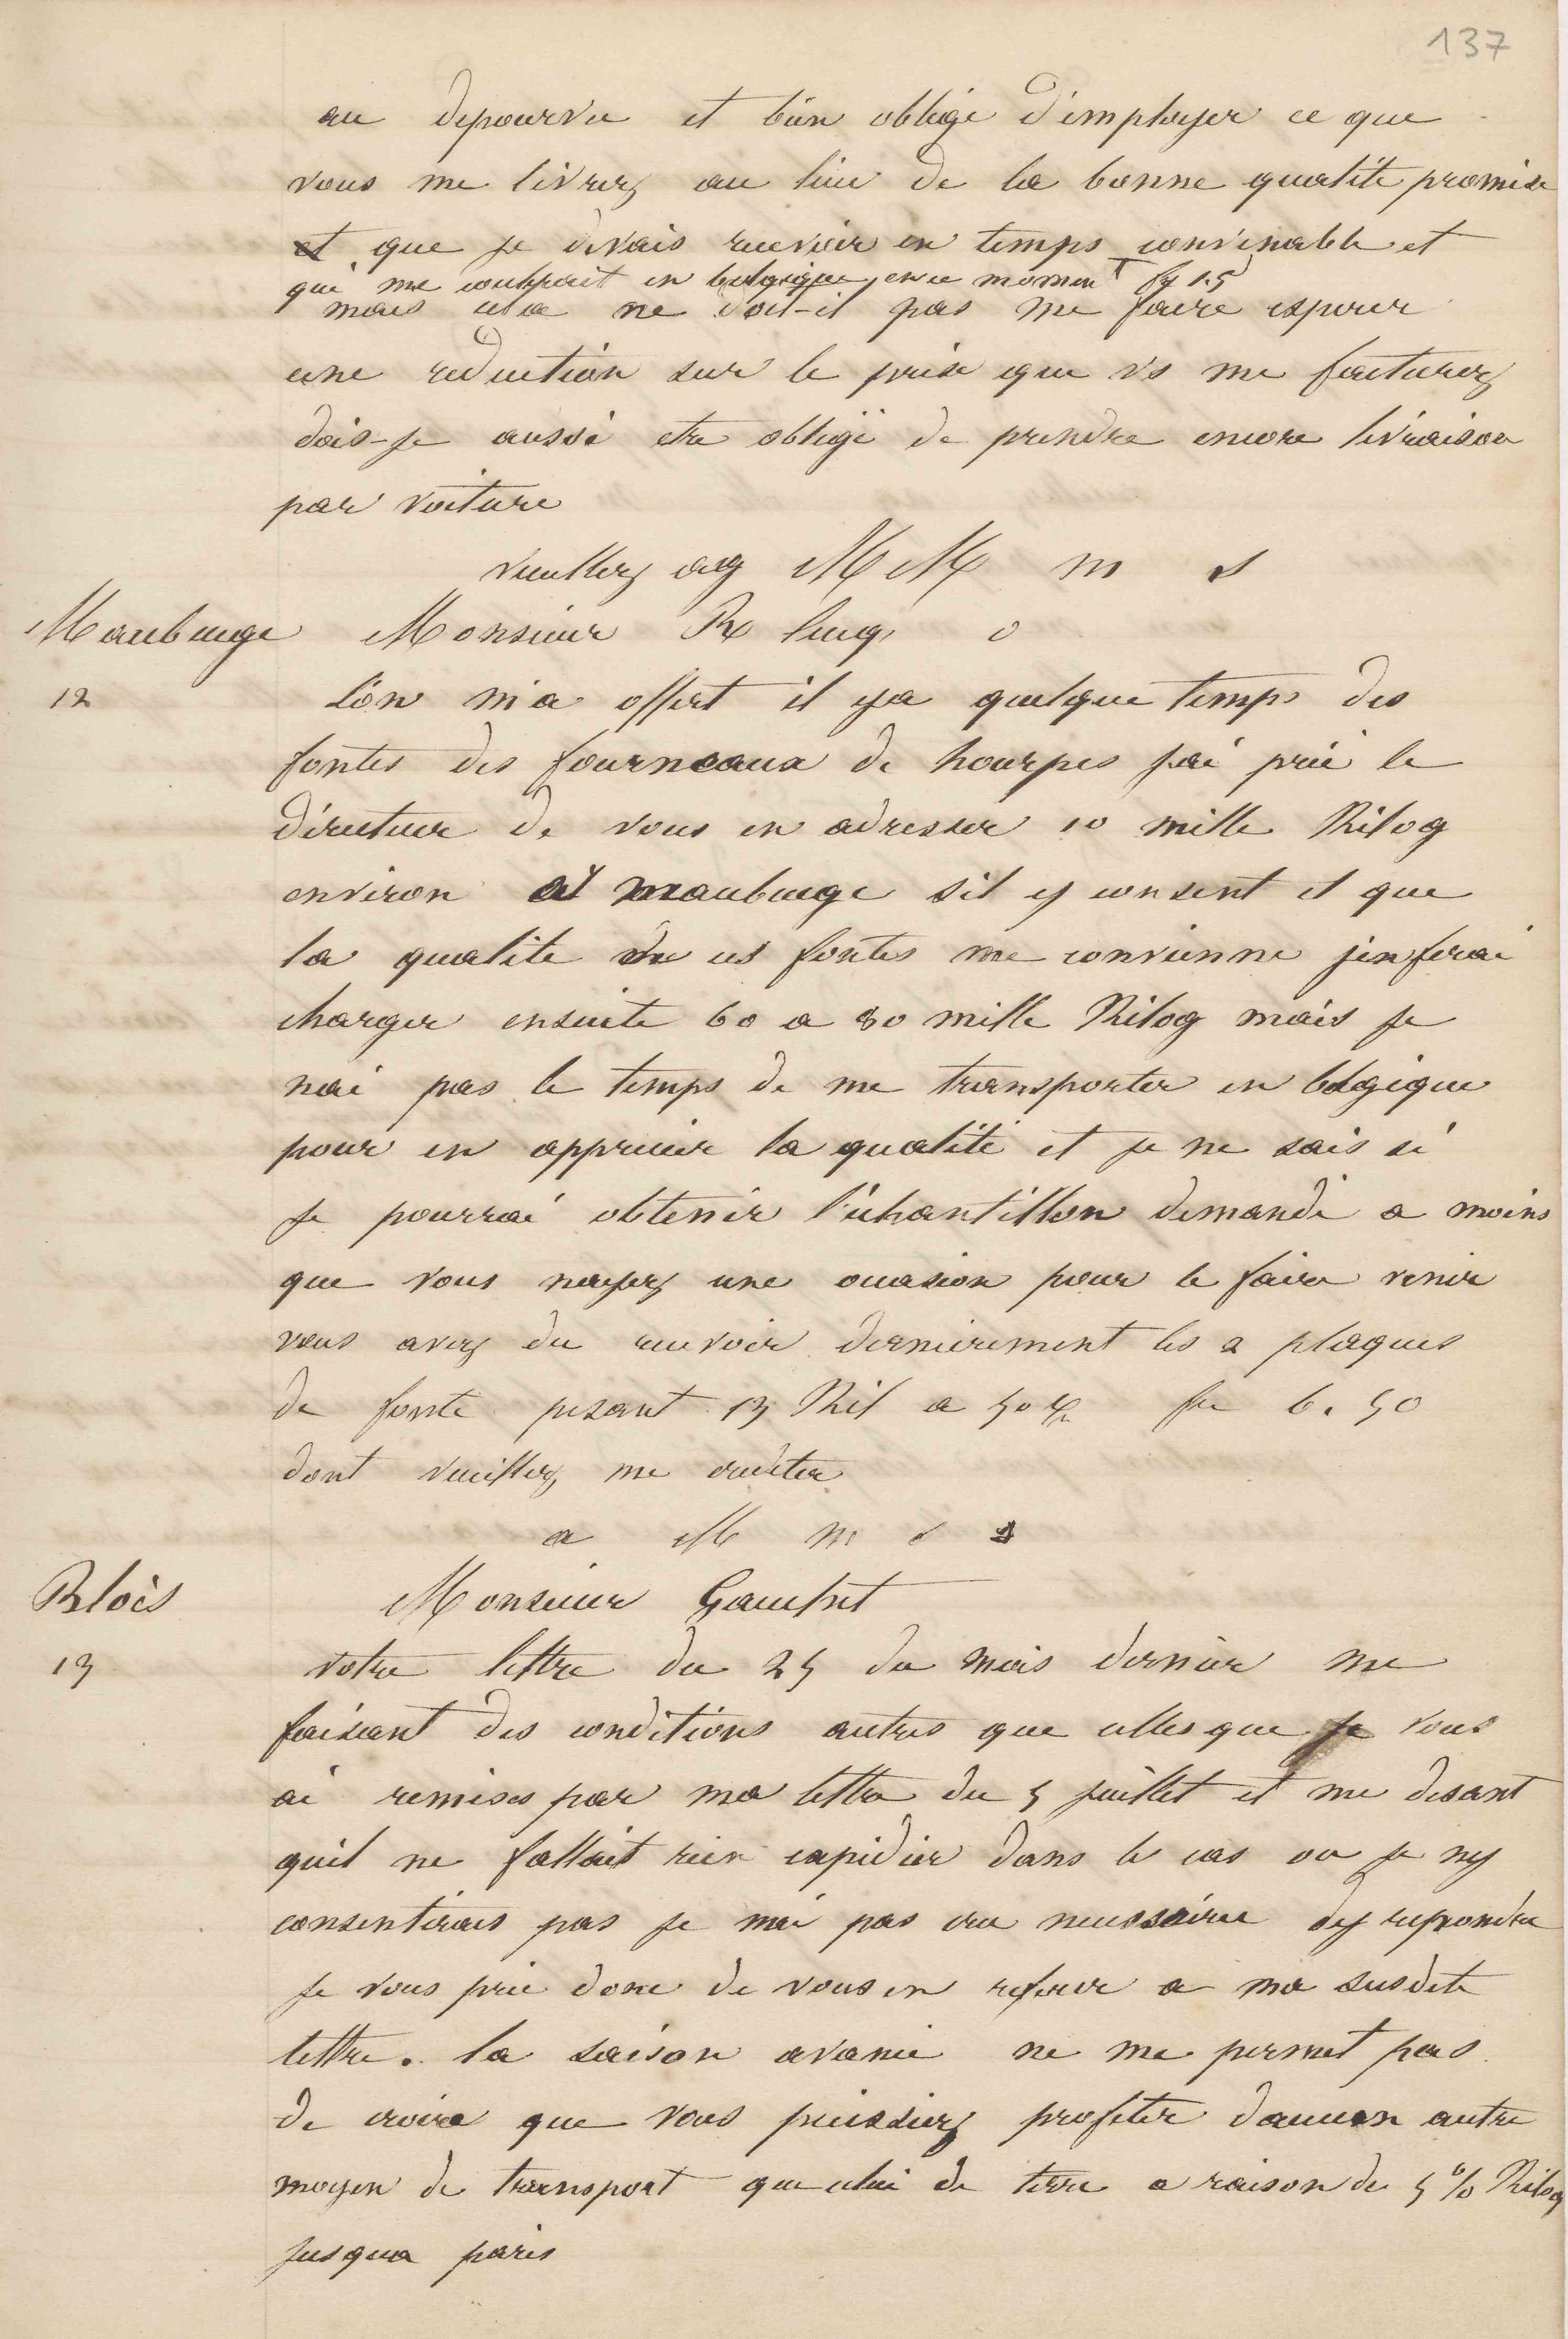 137
au depourvu et bien obligé d'employer ce que
vous me livrez au lieu de la bonne qualité promise
et que je devais recevoir en temps convenable et
qui me coutrait en belgique en ce moment fr 15
mais cela ne doit-il pas me faire esperer
une reduction sur le prix que vs me facturez
dois-je aussi etre obligé de prendre encore livraison
par voiture
veuillez ag MM m s
Maubeuge Monsieur
12 L'on m'a offert il ya quelque temps des
fontes des fourneaux de hourpes j'ai prié le
directeur de vous en adresser 10 mille Kilog
environ a maubeuge sil y consent et que
la qualite de ces fontes me convienne j'en ferai
charger ensuite 60 a 80 mille Kilog mais je
nai pas le temps de me transporter en belgique
pour en apprecier la qualité et je ne sais si
je pourrai obtenir l'echantillon demandé a moins
que vous nayez une occasion pour le faire venir
vous avez du recevoir dernierement les 2 plaques
de fonte pesant 13 Kil a 50 fr 6.50
dont veuillez me crediter
a M m s s
Blois Monsieur
13 votre lettre du 25 du mois dernier me
faisant des conditions autres que celles que je vous
ai remises par ma lettre du 5 juillet et me disant
quil ne fallait rien expidier dans le cas ou je ny
consentirais pas je nai pas cru necessaire dy repondre
je vous prie donc de vous en referer a ma susdite
lettre. la saison avancée ne me permet pas
de croire que vous puissiez profiter daucun autre
moyen de transport que celui de terre a raison de 5 % Kilog
jusqua paris